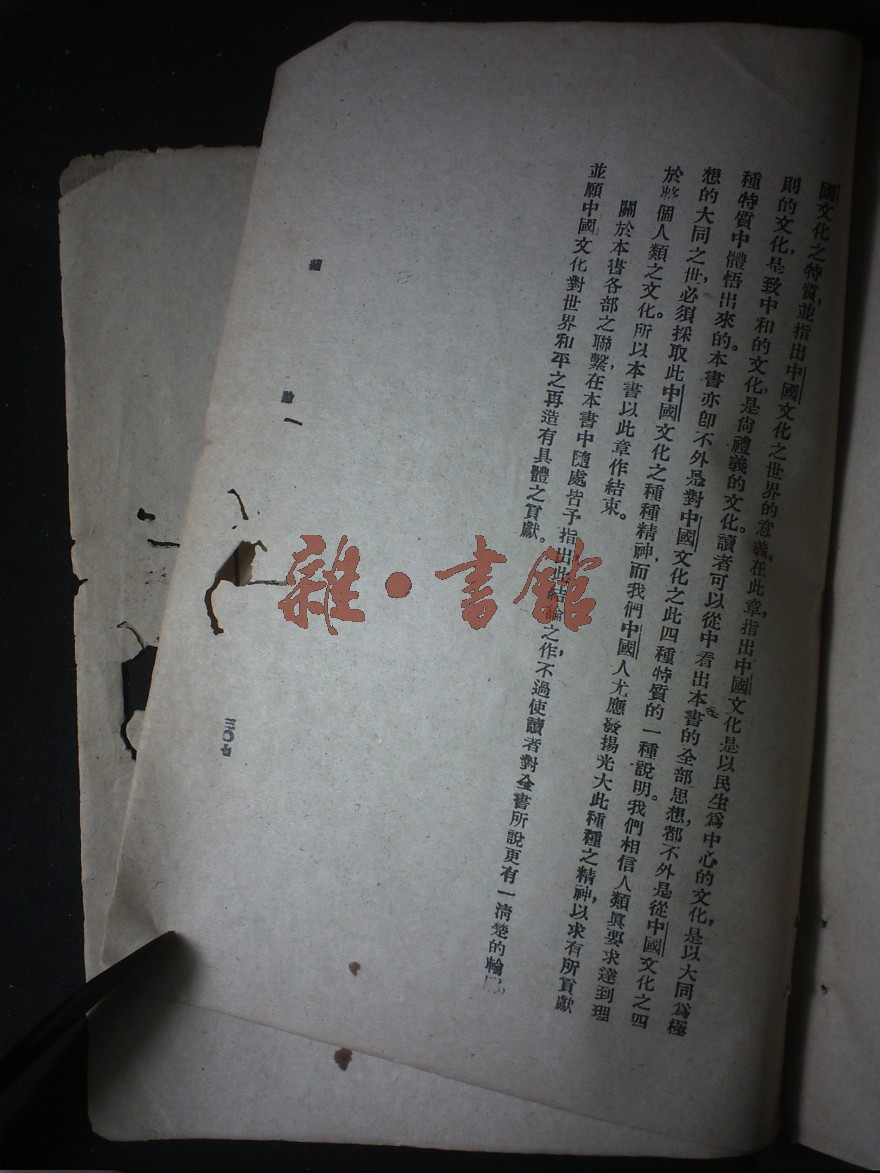 國文化之特質，並指出中國文化之世界的意義。在此章，指出中國文化是以民生為中心的文化，是以大同為極
則的文化，是致中和的文化，是尙禮義的文化。讀者可以從中看出本書的全部思想，都不外是從中國文化之四
種特質中體悟出來的。本書亦卽不外是對中國文化之此四種特質的一種說明。我們相信人類眞要求達到理
想的大同之世，必須採取此中國文化之種種精神，而我們中國人尤應發揚光大此種種之精神，以求有所貢獻
於整個人類之文化。所以本書以此章作結束。
關於本書各部之聯繫，在本書中隨處皆予指出，此結論之作，不過使讀者對全書所說更有一淸楚的輪
並願中國文化對世界和平之再造有具體之貢獻。
三〇七
雜·書館